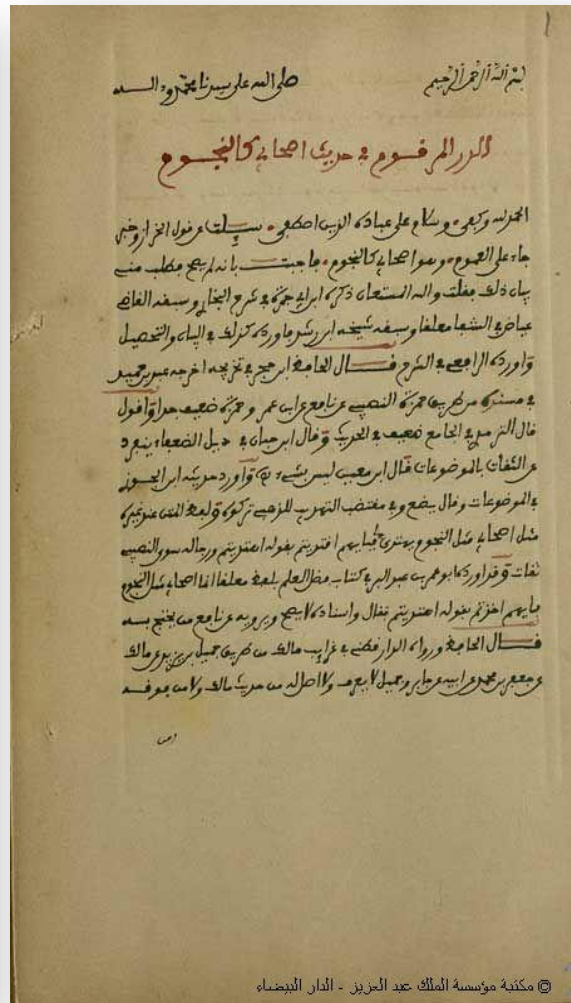 1
بسم الله الرحمن الرحيم صلى الله على سيدنا محمد وءاله
الدرر المرقوم في حديث اصحابي كالنجوم
الحمد لله وكفى وسلام على عباده الذين اصطفى سيلت عن قول الخرازو خبر
جاء على العموم وهو اصحابي كالنجوم فاجبت بانه لم يصح فطلب مني
بيان ذلك فقلت والله المستعان ذكره ابن ابي جمرة في شرح البخاري وسبقه القاضي
عياض في الشفا معلفا وسبقه شيخه ابن رشد فاورده كذلك في البيان والتحصيل
واورده الرافعي في الشرح قال الحافظ ابن حجر في تخريجه اخرجه عبد بن حميد
في مسنده من طريق حمزة النصيبي عن نافع عن ابن عمر وحمزة ضعيف جدا واقول
قال الترمذي في الجامع ضعيف في الحديث وقال ابن حبان في ذيل الضعفاء ينفرد
عن الثقات بالموضوعات قال ابن معين ليس بشيء واورد حديثه ابن الجوزي
في الموضوعات وقال يضع وفي مقتضب التهذيب للذهبي تركوه ولفظ المتن عند غيره
مثل اصحابي مثل النجوم يهتدى بها بايهم اقتديتم بقوله اهتديتم ورجاله سوى النصيبي
ثقات وقد اورده ابو عمر بن عبد البر في كتاب فضل العلم بلفظ معلفا انما اصحابي مثل النجوم
فبايهم اخذتم بقوله اهتديتم فقال واسناده لا يصح ويرويه عن نافع من يحتج به
قال الحافظ ورواه الدارقطني في غرايب مالك من طريق جميل بن يزيد عن مالك
عن جعفر بن محمد عن ابيه عن جابر وجميل لا يعرف ولا اصل له من حديث مالك ولا من فوقه
© مكتبة مؤسسة الملك عبد العزيز - الدار البيضاء